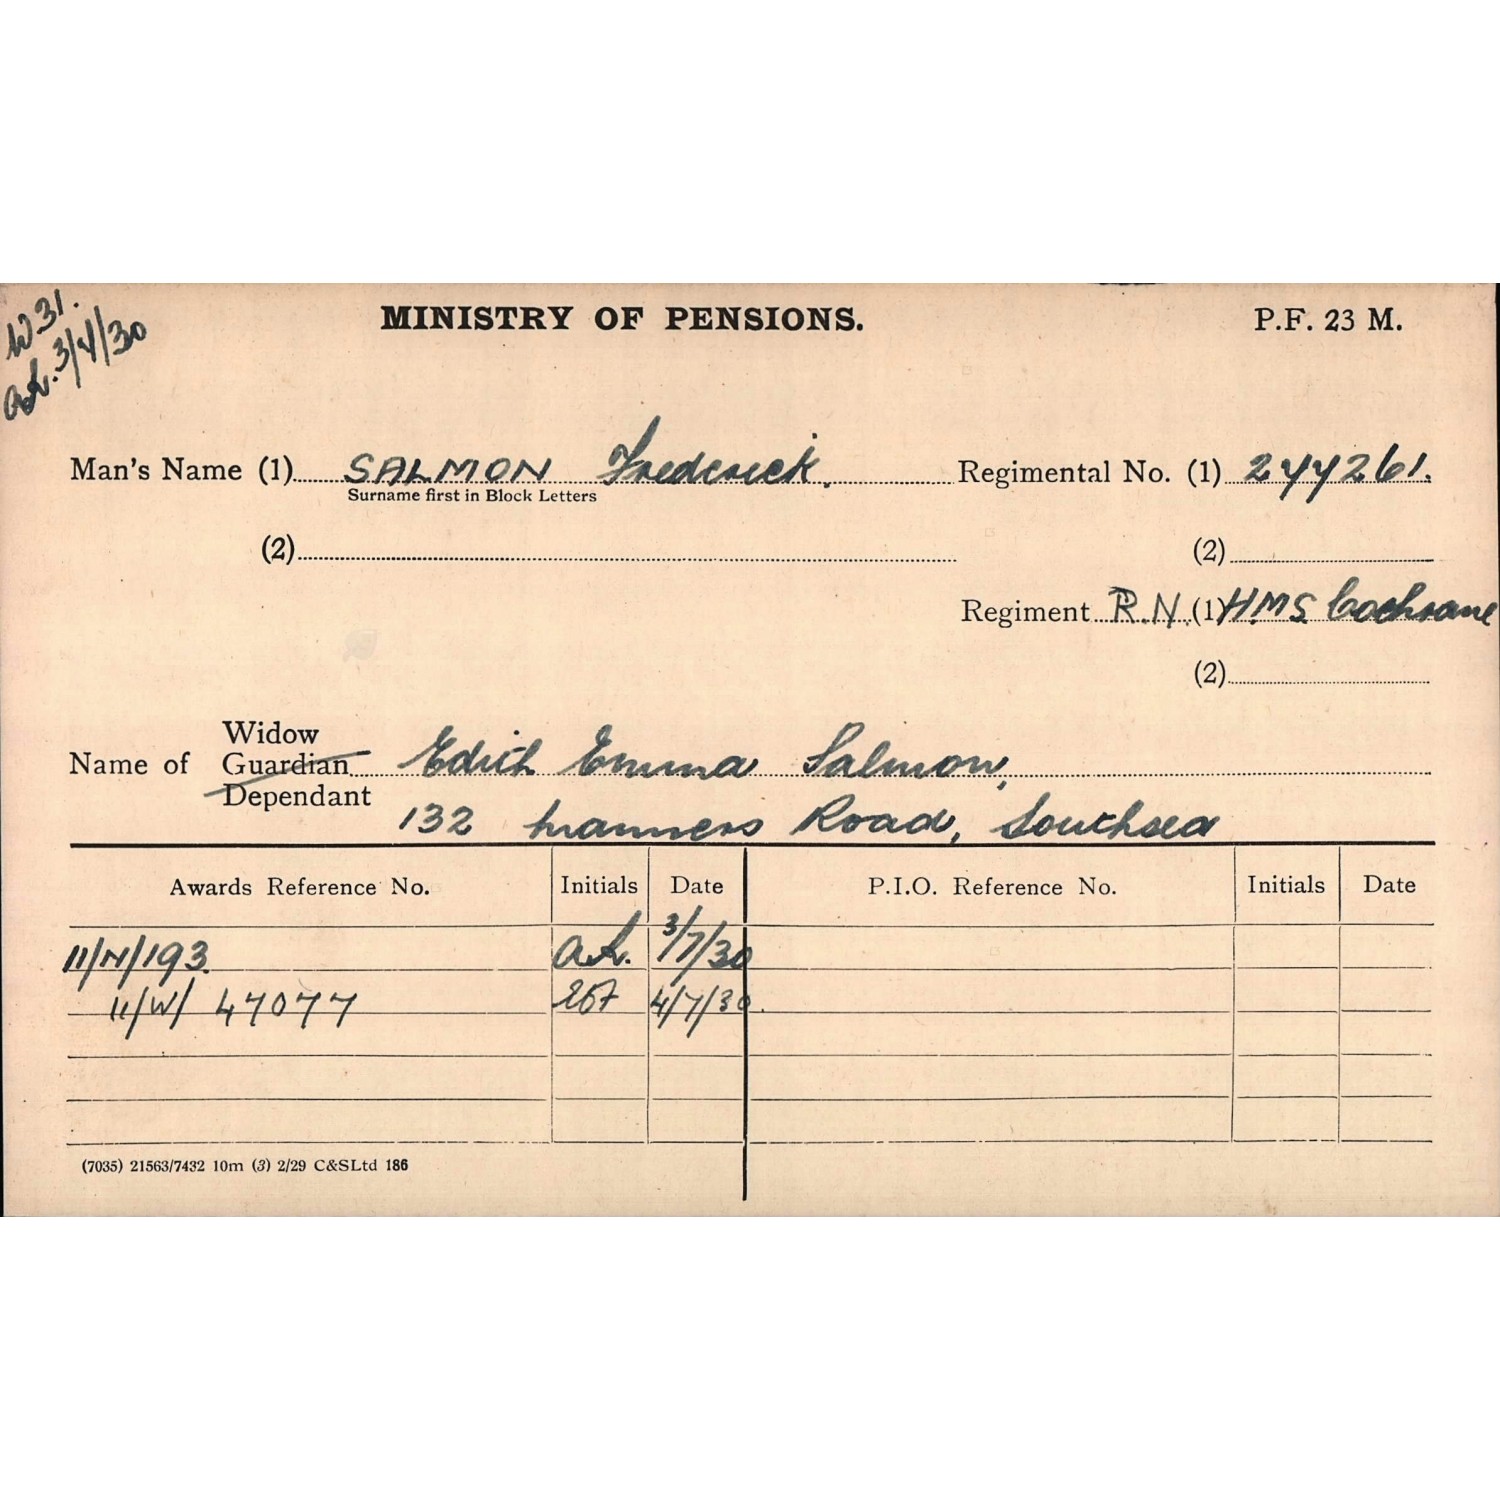 W31.
A.L. 3/7/30
MINISTRY OF PENSIONS.
P.F. 23 M.
Man's Name (1) SALMON Frederick. Regimental No. (1) 277261.
Surname first in Block Letters
(2) (2)
Regiment R.N. (1) H.M.S. Cochrane
(2)
Widow
Name of Guardian Edith Emma Salmon,
Dependant
132 Manners Road, Southsea
Awards Reference No. Initials Date P.I.O. Reference No. Initials Date
11/N/193. A.L. 3/7/30
11/W/ 47077 4/7/30
(7035) 21563/7432 10m (3) 2/29 C&SLtd 186